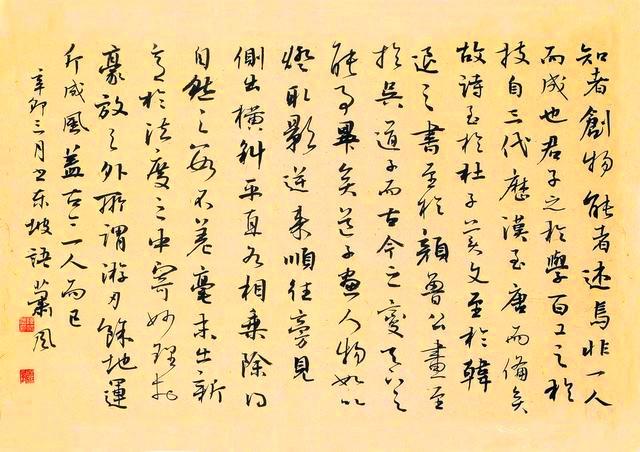 知者創物能者述焉非一人
而成也君子之於學百工之於
技自三代歷漢至唐而備矣
故詩至於杜子美文至於韓
退之書至於顏魯公畫至
於吳道子而古今之變天下之
能事畢矣道子畫人物如以
燈取影逆來順往旁見
側出橫斜平直各相乘除得
自然之數不差毫末出新
意於法度之中寄妙理於
豪放之外所謂游刃餘地運
斤成風蓋古今一人而已
辛卯三月书东坡語蕭風